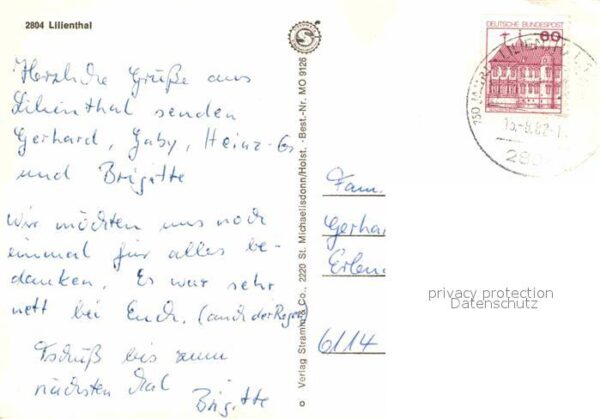 2804 Lilienthal
Herzliche Grüße aus
Lilienthal senden
Gerhard, Gaby, Heinz-
und Brigitte
Wir möchten uns noch
einmal für alles be-
danken. Es war sehr
nett bei Euch. (auch der Regen)
Tschüß bis zum
nächsten Mal
Brigitte
Verlag Stramm & Co., 2220 St. Michaelisdonn/Holst. · Best.-Nr. MO 9126
S
DEUTSCHE BUNDESPOST
60
150 JAHRE LILIENTHAL
15.-8.82
280
Fam.
Gerhar
Erlen
6114
privacy protection
Datenschutz